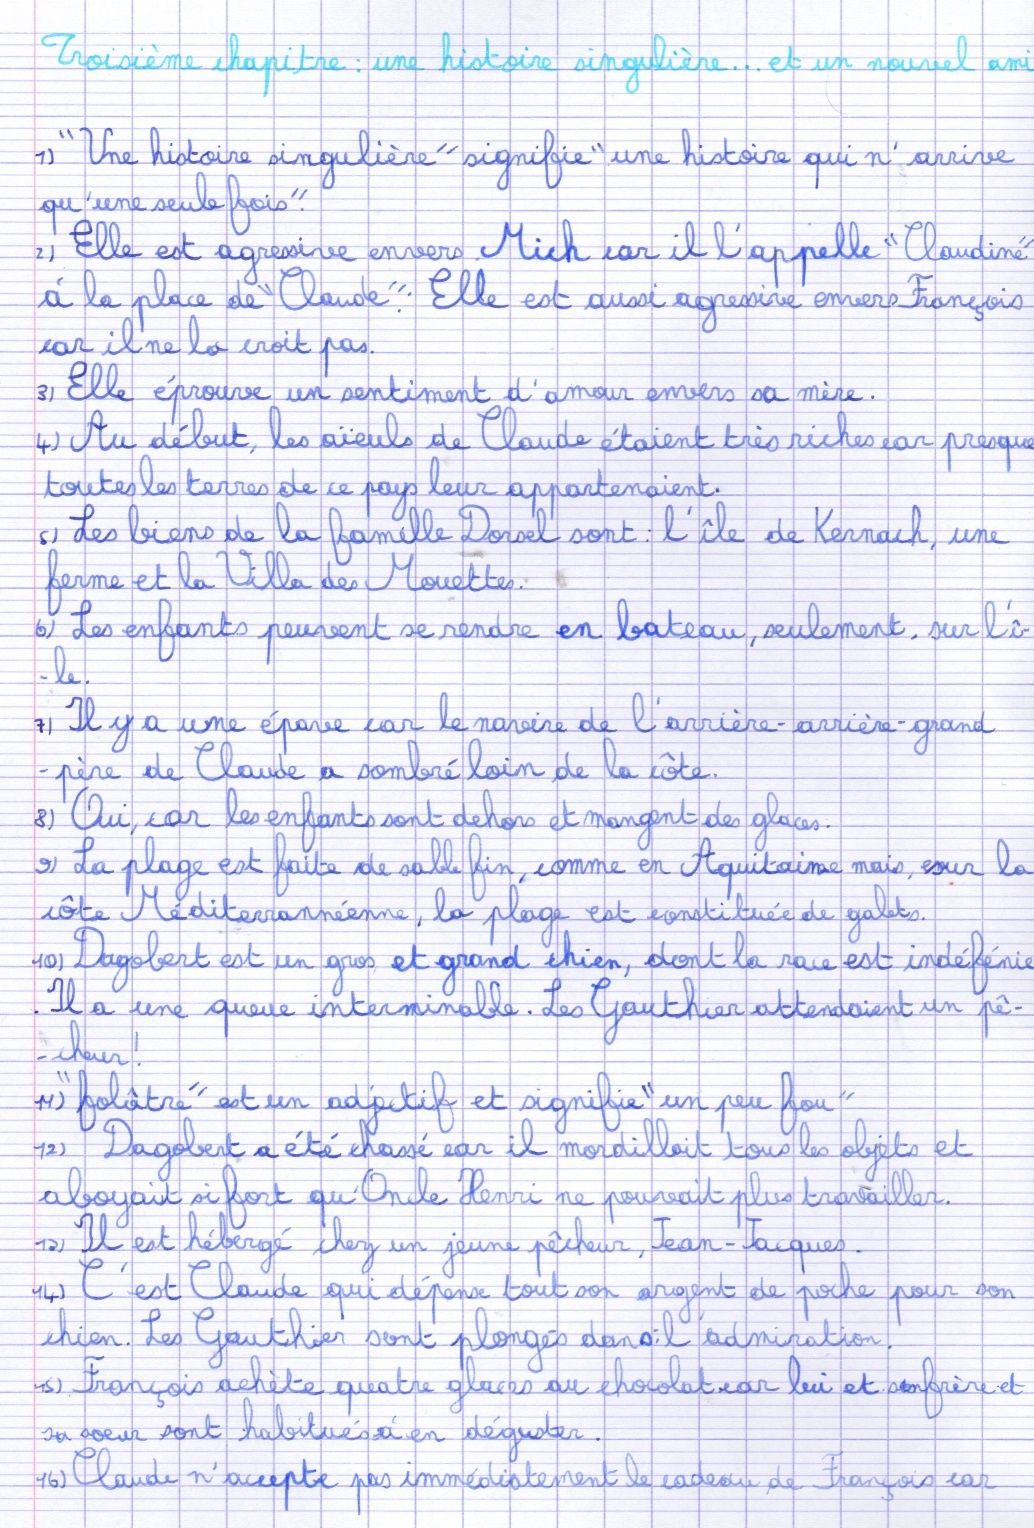 Troisième chapitre : une histoire singulière... et un nouvel ami
1) "Une histoire singulière" signifie "une histoire qui n'arrive
qu'une seule fois".
2) Elle est agressive envers Mich car il l'appelle "Claudine"
á la place de "Claude". Elle est aussi agressive envers François
car il ne la croit pas.
3) Elle éprouve un sentiment d'amour envers sa mère.
4) Au début, les aïeuls de Claude étaient très riches car presque
toutes les terres de ce pays leur appartenaient.
5) Les biens de la famille Dorsel sont : l'île de Kernach, une
ferme et la Villa des Mouettes.
6) Les enfants peuvent se rendre en bateau, seulement, sur l'î-
-le.
7) Il y a une épave car le navire de l'arrière-arrière-grand
-père de Claude a sombré loin de la côte.
8) Oui, car les enfants sont dehors et mangent des glaces.
9) La plage est faite de sable fin, comme en Aquitaine mais, sur la
côte Méditerrannéenne, la plage est constituée de galets.
10) Dagobert est un gros et grand chien, dont la race est indéfénie
. Il a une queue interminable. Les Gauthier attendaient un pê-
-cheur !
11) "folâtré" est un adjctif et signifie "un peu fou"
12) Dagobert a été chassé car il mordillait tous les objets et
aboyait si fort qu'Oncle Henri ne pouvait plus travailler.
13) Il est hébergé chez un jeune pêcheur, Jean-Jacques.
14) C'est Claude qui dépense tout son argent de poche pour son
chien. Les Gauthier sont plongés dans l'admiration.
15) François achète quatre glaces au chocolat car lui et son frère et
sa soeur sont habitués á en déguster.
16) Claude n'accepte pas immédiatement le cadeau de François car